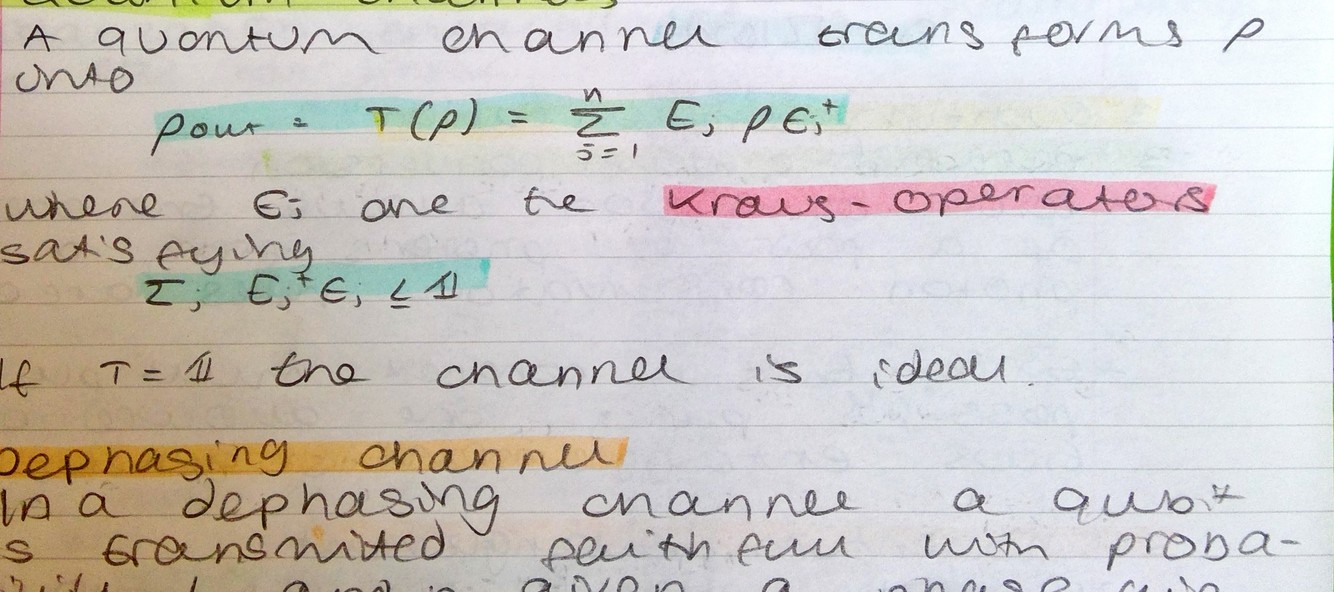 A quantum channel transforms ρ
onto
ρout = T(ρ) = Σ_{j=1}^{n} E_j ρ E_j^†
where E_j are the Kraus-operators
satisfying
Σ_j E_j^† E_j ≤ 𝟙
If T = 𝟙 the channel is ideal.
Dephasing channel
In a dephasing channel a qubit
is transmitted faithfull with proba-